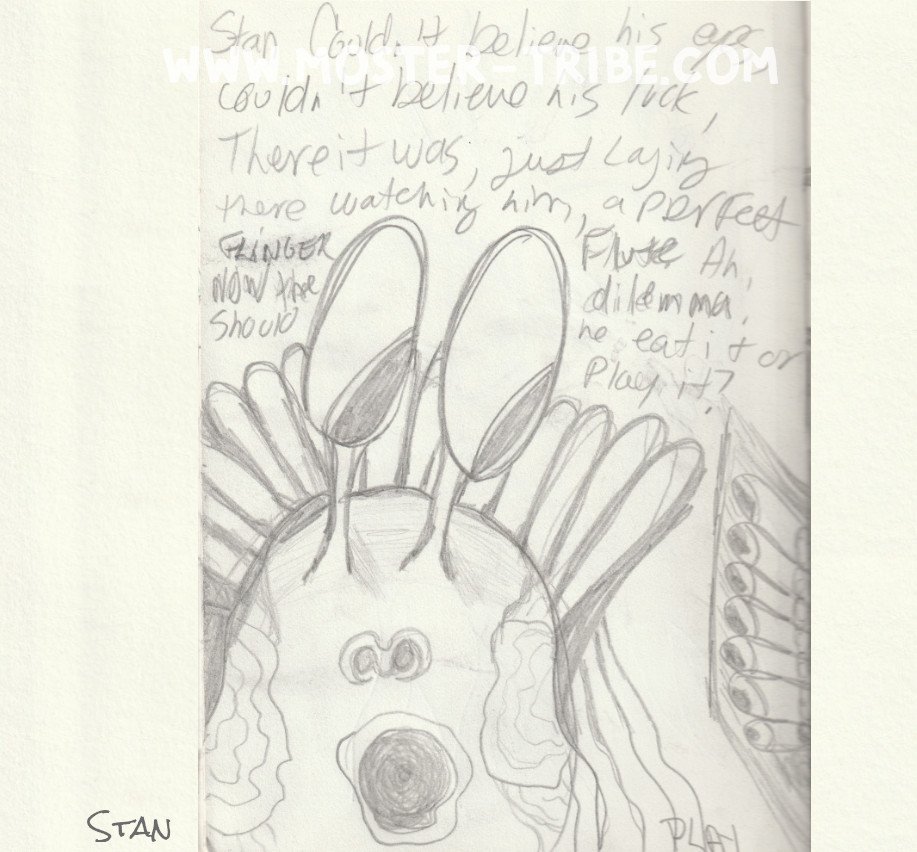 Stan Couldn't believe his eyes
WWW.MOSTER-TRIBE.COM
couldn't believe his luck,
There it was, just Laying
there watching him, a perfect
FLINGER Flute. Ah,
NOW the dilemma,
Should he eat it or
Play it?
STAN
PLAY